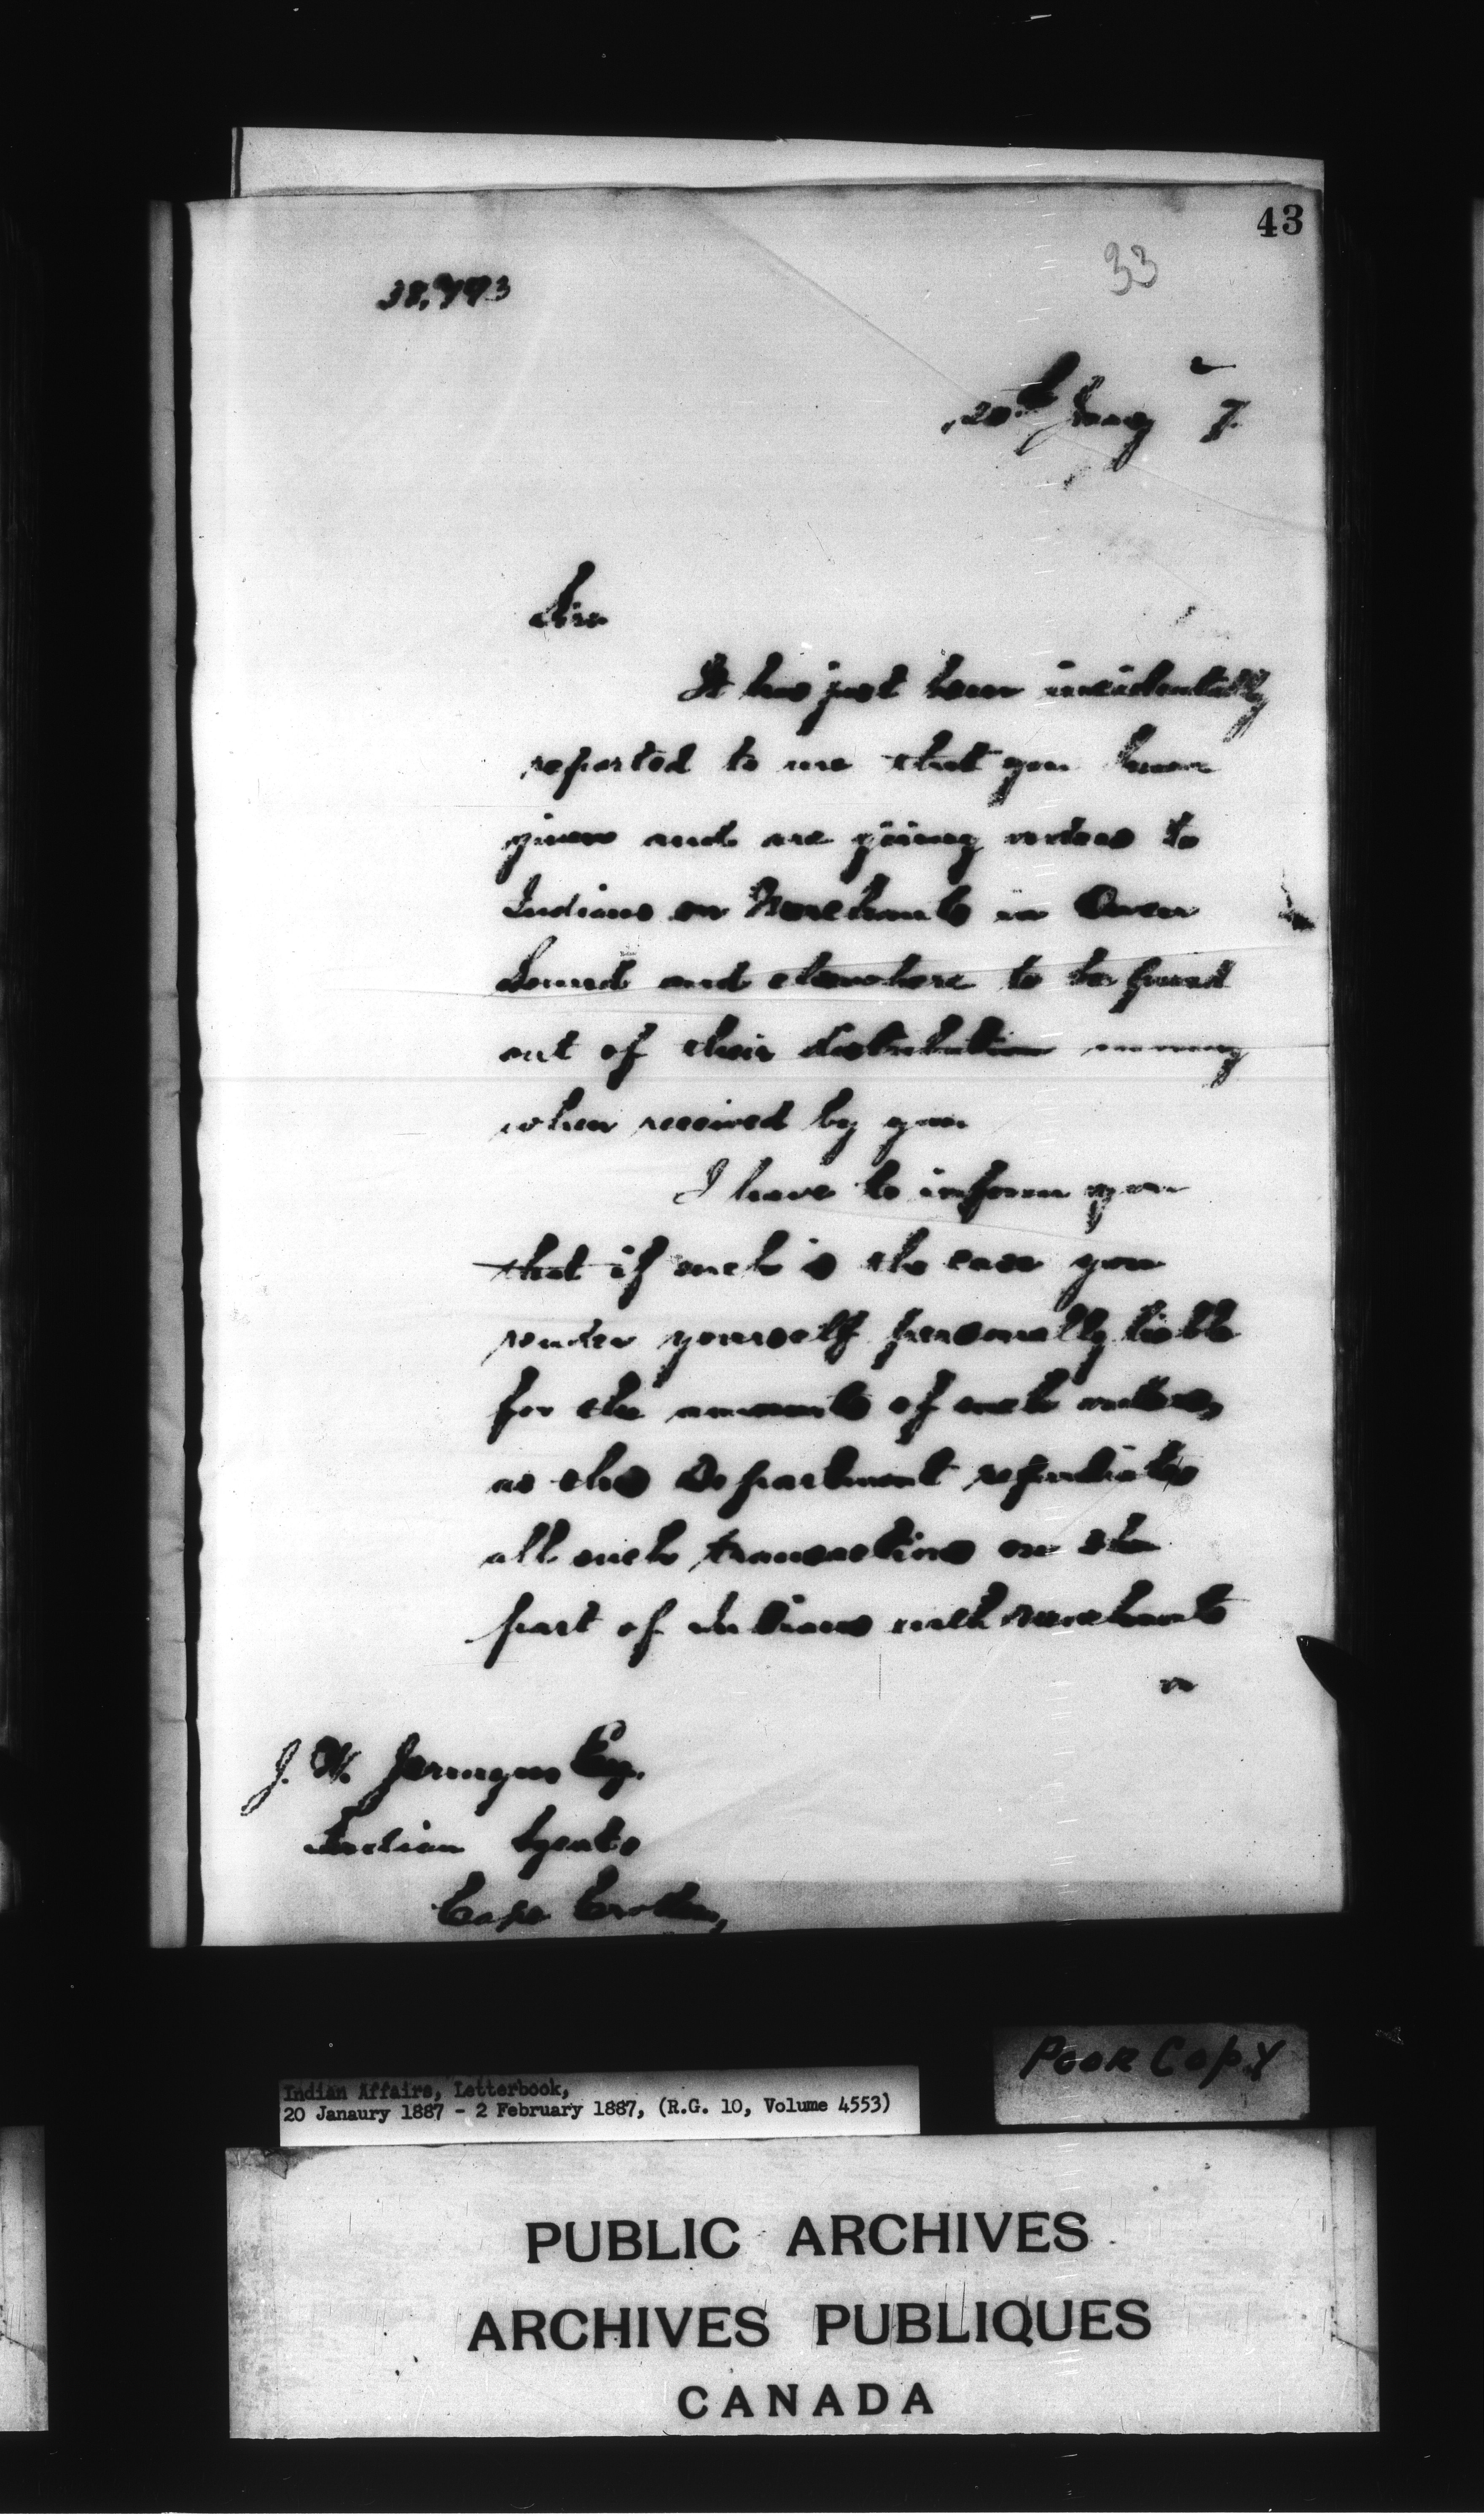 43
33
20th Jany 7.
Sir
It has just been incidentally
reported to me that you have
given and are giving orders to
Indians on Merchants in Owen
Sound and elsewhere to be paid
out of their distribution money
when received by you
I have to inform you
that if such is the case you
render yourself personally liable
for the amounts of such orders,
as the Department repudiates
all such transactions on the
part of Indians with merchants
or
J. W. Jermyn Esq.
Indian Agent
Cape Croker,
POOR COPY
Indian Affairs, Letterbook,
20 Janaury 1887 - 2 February 1887, (R.G. 10, Volume 4553)
PUBLIC ARCHIVES
ARCHIVES PUBLIQUES
CANADA